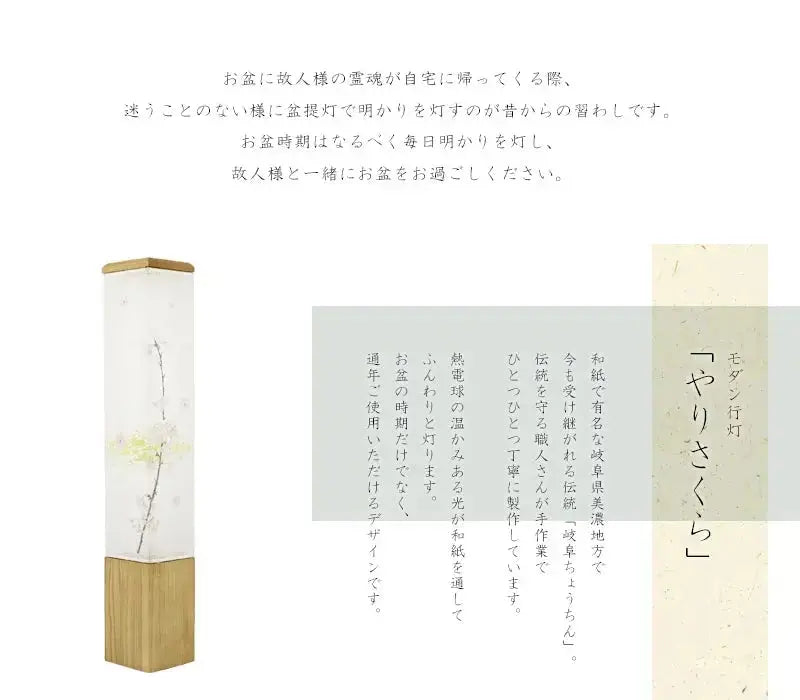 お盆に故人様の霊魂が自宅に帰ってくる際、
迷うことのない様に盆提灯で明かりを灯すのが昔からの習わしです。
お盆時期はなるべく毎日明かりを灯し、
故人様と一緒にお盆をお過ごしください。
モダン行灯
「やりさくら」
和紙で有名な岐阜県美濃地方で
今も受け継がれる伝統「岐阜ちょうちん」。
伝統を守る職人さんが手作業で
ひとつひとつ丁寧に製作しています。
熱電球の温かみある光が和紙を通して
ふんわりと灯ります。
お盆の時期だけでなく、
通年ご使用いただけるデザインです。